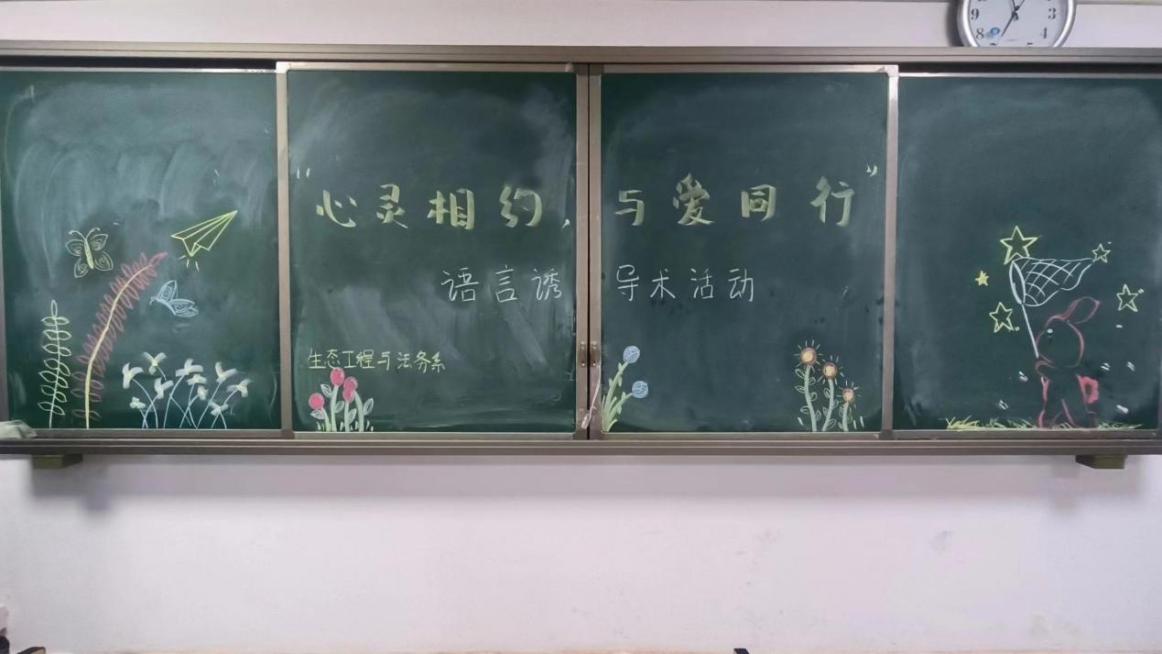 “心灵相约，与爱同行”
语言诱导术活动
生态工程与法务系
9 3
8 4